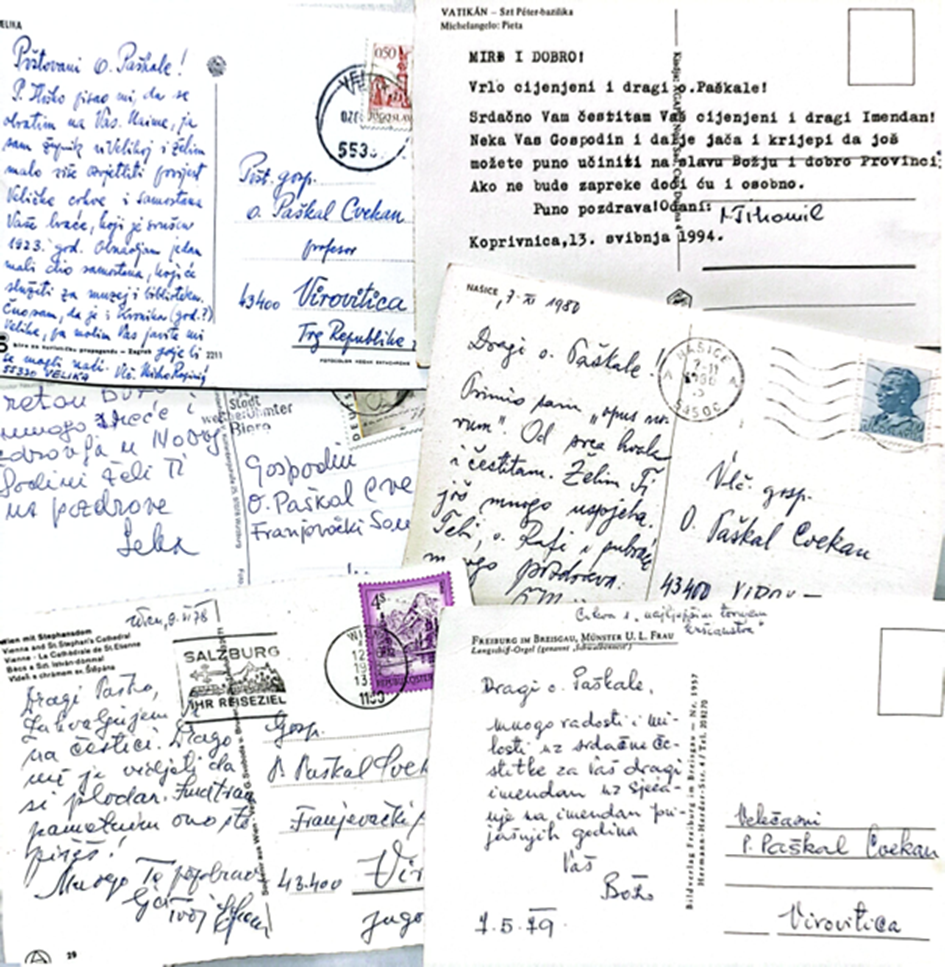 VELIKA
Poštovani o. Paškale!
P. Hoško pisao mi, da se
obratim na Vas. Naime, ja
sam župnik u Velikoj i želim
malo više osvjetliti povijest
Veličke crkve i samostana
Vaše braće, koji je srušen
1923. god. Obnavljam jedan
mali dio samostana, koji će
služiti za muzej i biblioteku.
Čuo sam, da je i kronika (god.?)
Velike, pa molim Vas javite mi
gdje bi
se mogla naći. Vlč.
55330 VELIKA
2211
0,50
JUGOSLAVIJA
VELIKA
5533
Pošt. gosp.
o. Paškal Cvekan
profesor
43400 Virovitica
Trg Republike
VATIKÁN – Szt Péter-bazilika
Michelangelo: Pieta
MIR I DOBRO!
Vrlo cijenjeni i dragi o.Paškale!
Srdačno Vam čestitam Vaš cijenjeni i dragi Imendan!
Neka Vas Gospodin i dalje jača i krijepi da još
možete puno učiniti na slavu Božju i dobro Provinci
Ako ne bude zapreke doći ću i osobno.
Puno pozdrava!Odani:
Tihomil
Koprivnica,13. svibnja 1994.
NAŠICE, 7-XI 1980
Dragi o. Paškale!
Primio sam "opus no-
vum". Od srca hvala
i čestitam. Želim Ti
još mnogo uspjeha.
Tebi, o. Rafi i
mnogo pozdrava.
NAŠICE
7-11
1980
Vlč. gosp.
O. Paškal Cvekan
43400
mnogo sreće i
zdravlja u Novoj
Godini želi Ti
uz pozdrave
Seka
Stadt
weltberühmter
Biere
Gospodin
O. Paškal Cve
Franjevački Sam
Wien mit Stephansdom
Vienna and St. Stephen's Cathedral
Vienne - La Cathédrale de St. Etienne
Bécs a Szt. István-dómmal
Vídeň s chrámem sv. Štěpána
Wien, 9. VI 78
SALZBURG
IHR REISEZIEL
4s
WI
1150
REPUBLIK ÖSTER
Dragi Paško,
Zahvaljujem
na čestici. Drago
mi je vidjeti da
si plodan.
pametnim ono što
pišeš!
Mnogo Te pozdravlja
Tvoj
29
Gosp.
P. Paškal Cvek
Franjevački
43.400 Vir
Jugo
Crkva s "najljepšim tornjem
kršćanstva"
FREIBURG IM BREISGAU, MÜNSTER U. L. FRAU
Langschiff-Orgel (genannt „Schwalbennest")
Dragi o. Paškale,
mnogo radosti i mi-
losti uz srdačne če-
stitke za Vaš dragi
imendan uz sjeća-
nje na imendan pri-
jašnjih godina
Vaš
Božo
7.5.79.
Bildverlag Freiburg im Breisgau – Nr. 5957
Hermann-Herder-Str. 4 / Tel.
Velečasni
P. Paškal Cvekan
Virovitica